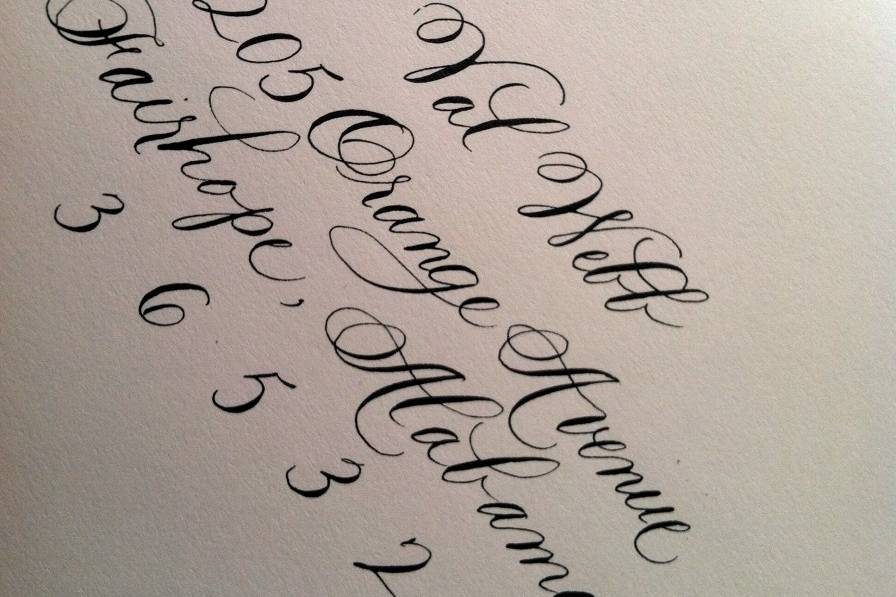 Val Webb
205 Orange Avenue
Fairhope, Alabama
3 6 5 3 2